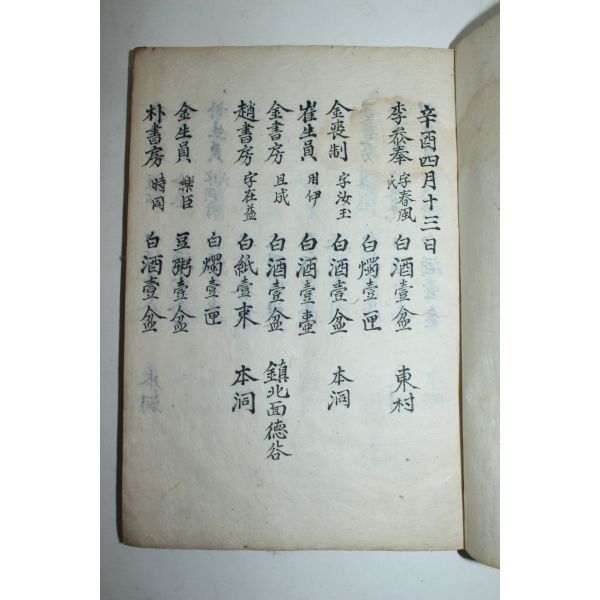 辛酉四月十三日
李參奉 字春風 氏 白酒壹盆 東村
白燭壹匣
金喪制 字汝玉 白酒壹盆 本洞
崔生員 用伊 白酒壹壺
金書房 且成 白酒壹盆 鎮北面德谷
趙書房 字在益 白紙壹束 本洞
白燭壹匣
金生員 樂臣 豆粥壹盆
朴書房 時同 白酒壹盆